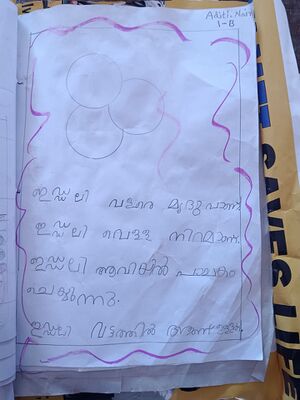 Aditi. Nair
1-B
ഇഡ്ഡലി വളരെ മൃദുവാണ്.
ഇഡ്ഡലി വെള്ള നിറമാണ്.
ഇഡ്ഡലി ആവിയിൽ പാചകം
ചെയ്യുന്നു.
ഇഡ്ഡലി വട്ടത്തിൽ ആണ്
SAVES LIFE